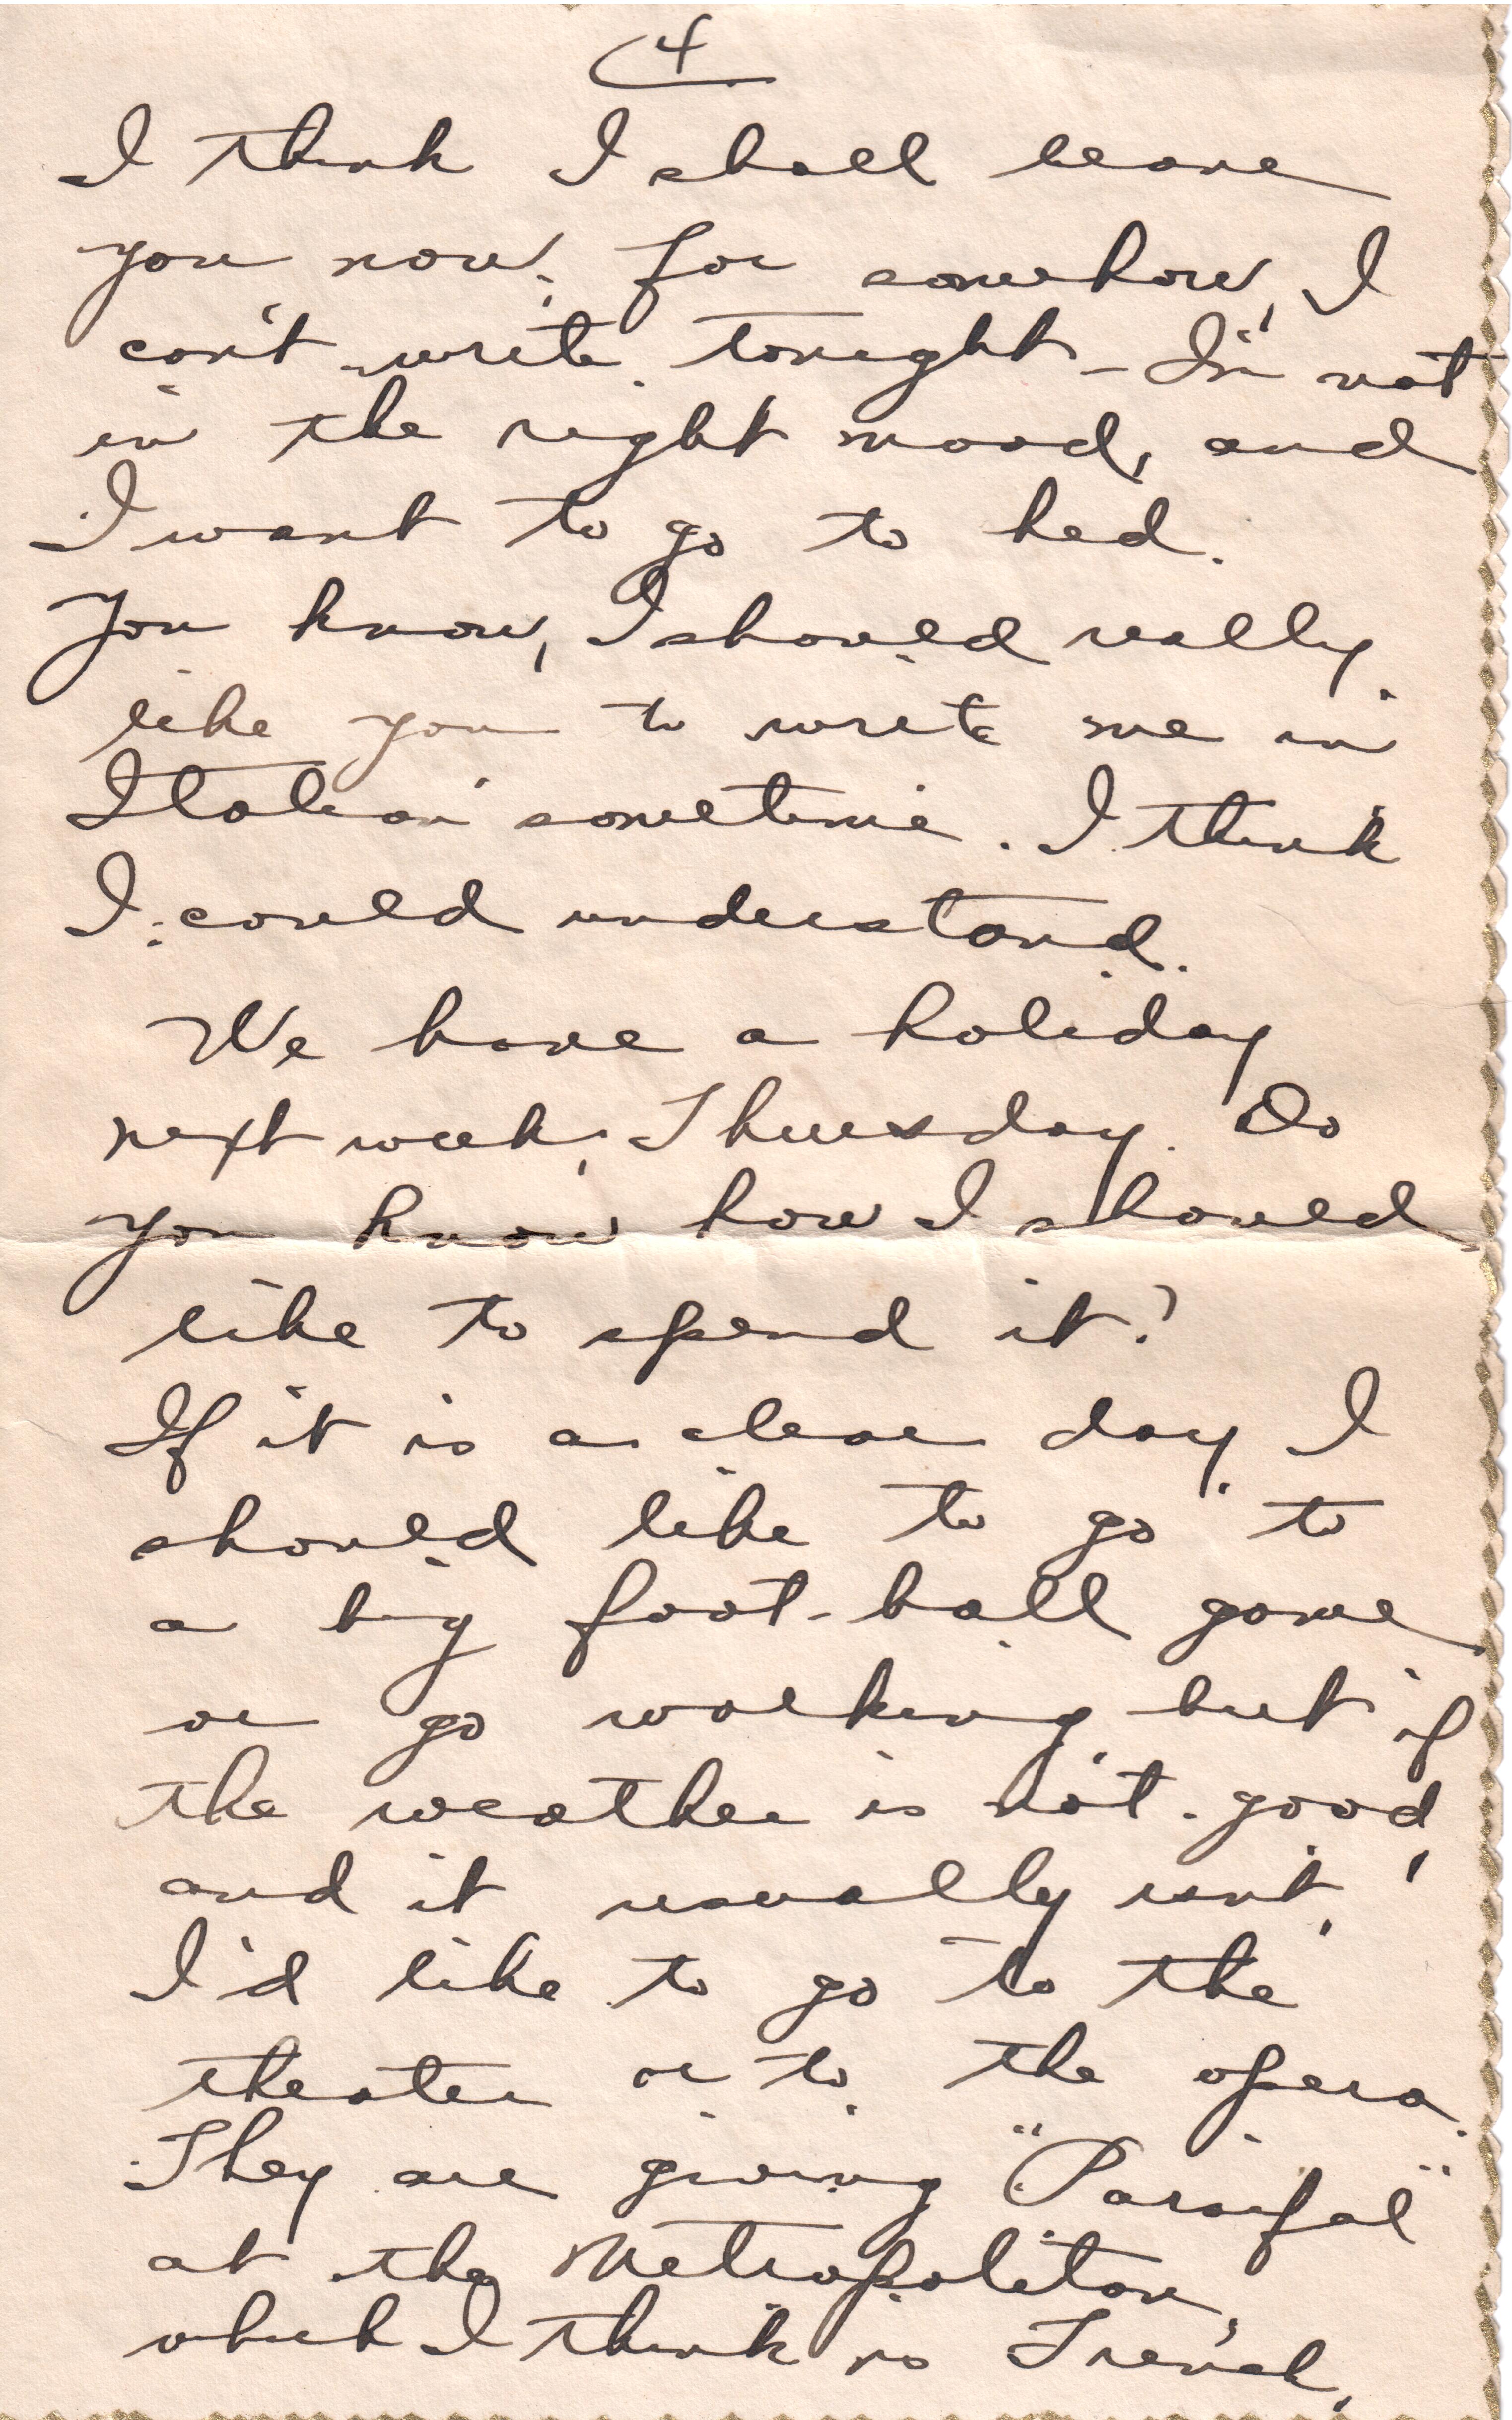 4
I think I shall leave
you now, for somehow, I
can't write tonight - I'm not
in the right mood, and
I want to go to bed.
You know, I should really
like you to write me in
Italian sometime. I think
I could understand.
We have a holiday
next week, Thursday. Do
you know how I should
like to spend it?
If it is a clear day I
should like to go to
a big foot-ball game
or go walking, but if
the weather is not good,
and it usually isn't,
I'd like to go to the
theater or to the opera.
They are giving "Parsifal"
at the Metropolitan,
which I think is French,